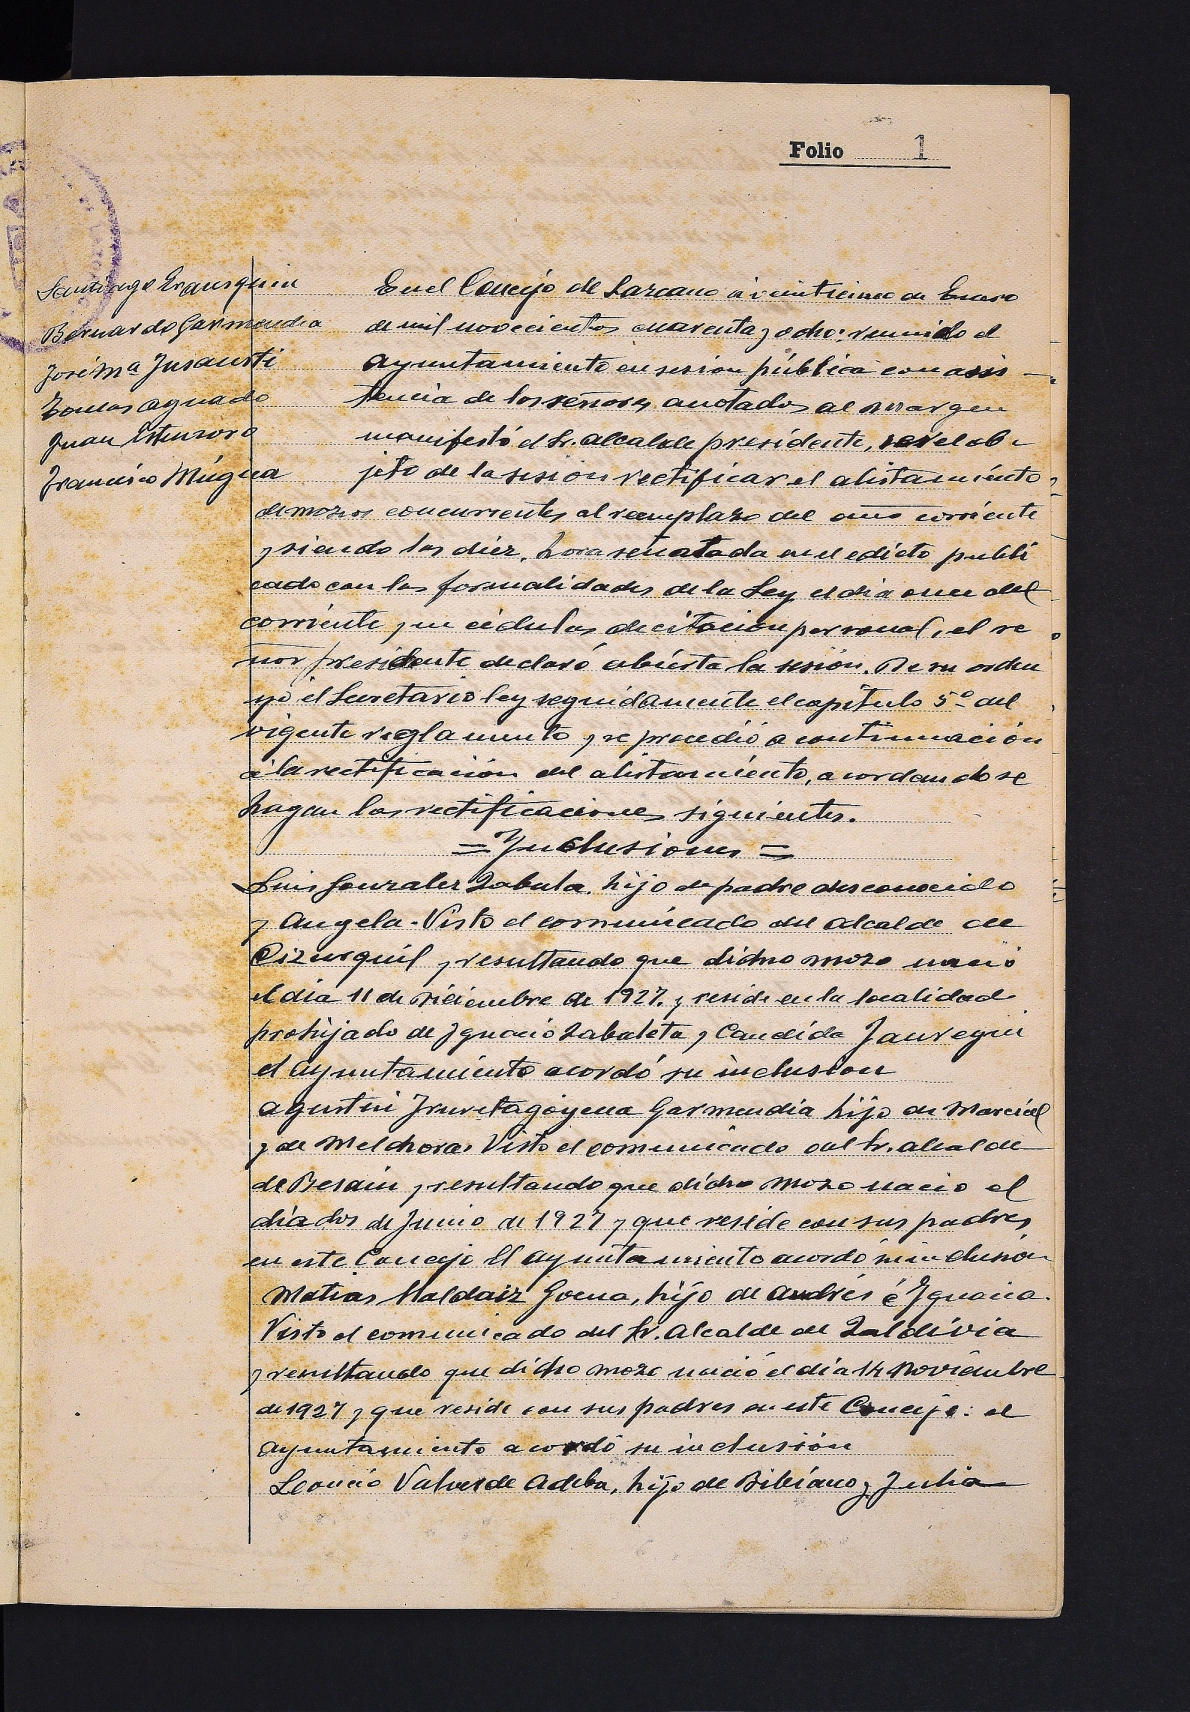 Folio 1
Santiago Erausquin
Bernardo Garmendia
José Mª Insausti
Tomas Aguado
Juan Astuzoro
Francisco Múgica
En el Concejo de Lazcano a veinticinco de Enero
de mil novecientos cuarenta y ocho: reunido el
Ayuntamiento en sesión pública con asis
tencia de los señores anotados al margen
manifestó el Sr. Alcalde presidente, ser el ob-
jeto de la sesion rectificar el alistamiento
de mozos concurrentes al reemplazo del año corriente
y siendo las diez, hora señalada en el edicto publi
cado con las formalidades de la Ley el dia once del
corriente y en cédulas de citación personal, el se
ñor presidente declaró abierta la sesión. De su orden
yo el Secretario ley seguidamente el capítulo 5º del
vigente reglamento y se procedió a continuación
a la rectificación del alistamiento, acordandose
hagan las rectificaciones siguientes.
= Inclusiones =
Luis Gonzalez Zabala, hijo de padre desconocido
y Angela. Visto el comunicado del alcalde de
Cizurquil y resultando que dicho mozo nació
el dia 11 de Diciembre de 1927. y reside en la localidad
prohijado de Ignacio Zabaleta y Candida Jauregui
el Ayuntamiento acordó su inclusion
Agustin Iruretagoyena Garmendia hijo de Marcial
y de Melchora. Visto el comunicado del Sr. alcalde
de Besain y resultando que dicho mozo nacio el
día dos de Junio de 1927 y que reside con sus padres
en este Concejo El Ayuntamiento acordó su inclusión
Matias Maldaiz Goena, hijo de Andrés é Ignacia.
Visto el comunicado del Sr. Alcalde de Zaldivia
y resultando que dicho mozo nació el día 14 Noviembre
de 1927 y que reside con sus padres en este Concejo: el
Ayuntamiento acordó su inclusión
Leoncio Valverde Adeba, hijo de Bibiano y Julia